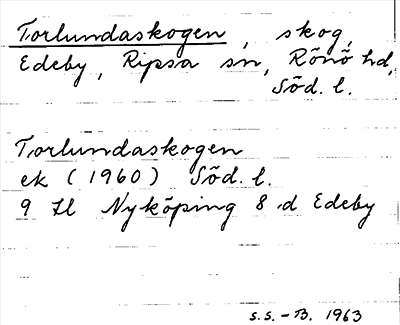 Torlundaskogen, skog,
Edeby, Ripsa sn, Rönö hd,
Söd. l.
Torlundaskogen
ek (1960) Söd. l.
9 H Nyköping 8 d Edeby
S.S.-B. 1963